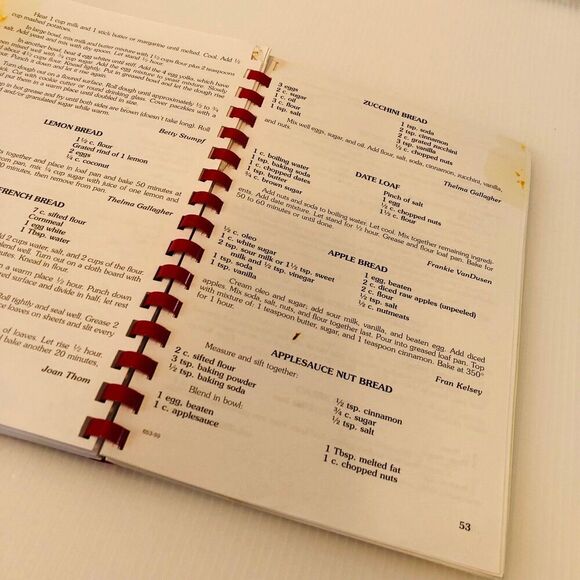 Hear 1 cup milk and 1 stick butter or margarine until melted. Cool. Add ½
cup mashed potatoes.
In large bowl, mix milk and butter mixture with 1½ cups flour plus 2 teaspoons
salt. Add yeast and mix with dry spoon. Let stand ½ hour.
In another bowl, beat 4 egg whites until stiff. Add the 4 egg yolks, which have
been mixed well with ¾ cup sugar. Add the egg mixture to yeast mixture. Slowly
about 4½ cups flour. Knead lightly. Put in greased bowl and let the dough rise
hour. Punch it down and let it rise again.
Turn dough out on a floured surface. Roll dough until approximately ½ to ¾
Cut with cookie cutter or round drinking glass. Cover pacekies with a
put them in a warm place until doubled in size.
in hot grease and fry until both sides are brown (doesn't take long). Roll
and/or granulated sugar while warm.
Betty Stumpf
LEMON BREAD
1½ c. flour
Grated rind of 1 lemon
2 eggs
¼ c. coconut
together and place in loaf pan and bake 50 minutes at
from pan, mix ¼ cup sugar with juice of one lemon and
minutes, then remove from pan.
Thelma Gallagher
FRENCH BREAD
7 c. sifted flour
Cornmeal
1 egg white
1 Tbsp. water
2 cups water, salt, and 2 cups of the flour.
blend well. Turn out on a cloth board with
minutes. Knead in flour.
in a warm place ½ hour. Punch down
surface and divide in half, let rest
Roll tightly and seal well. Grease 2
loaves on sheets and slit every
of loaves. Let rise ½ hour.
bake another 20 minutes,
Joan Thom
ZUCCHINI BREAD
3 eggs
2 c. sugar
1 c. oil
3 c. flour
1 tsp. salt
1 tsp. soda
2 tsp. cinnamon
2 c. grated zucchini
3 tsp. vanilla
½ c. chopped nuts
Mix well eggs, sugar, and oil. Add flour, salt, soda, cinnamon, zucchini, vanilla,
and nuts.
Thelma Gallagher
DATE LOAF
1 c. boiling water
1 tsp. baking soda
1 c. chopped dates
1 tsp. butter
¾ c. brown sugar
Pinch of salt
1 egg
½ c. chopped nuts
1½ c. flour
Add nuts and soda to boiling water. Let cool. Mix together remaining ingredi-
ents. Add date mixture. Let stand for ½ hour. Grease and flour loaf pan. Bake for
50 to 60 minutes or until done.
Frankie VanDusen
APPLE BREAD
½ c. oleo
1 c. white sugar
2 tsp. sour milk or 1½ tsp. sweet
milk and ½ tsp. vinegar
1 tsp. soda
1 tsp. vanilla
1 egg, beaten
2 c. diced raw apples (unpeeled)
2 c. flour
½ tsp. salt
½ c. nutmeats
Cream oleo and sugar; add sour milk, vanilla, and beaten egg. Add diced
apples. Mix soda, salt, nuts, and flour together last. Pour into greased loaf pan. Top
with mixture of: 1 teaspoon butter, sugar, and 1 teaspoon cinnamon. Bake at 350°
for 1 hour.
Fran Kelsey
APPLESAUCE NUT BREAD
Measure and sift together:
2 c. sifted flour
3 tsp. baking powder
½ tsp. baking soda
½ tsp. cinnamon
¾ c. sugar
½ tsp. salt
Blend in bowl:
1 egg, beaten
1 c. applesauce
1 Tbsp. melted fat
1 c. chopped nuts
653-99
53